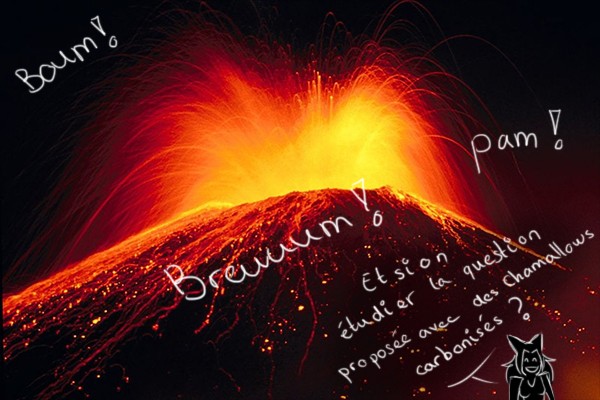 Boum !
Pam !
Breuuum !
Et si on
étudier la question
proposée avec des chamallows
carbonisés ?